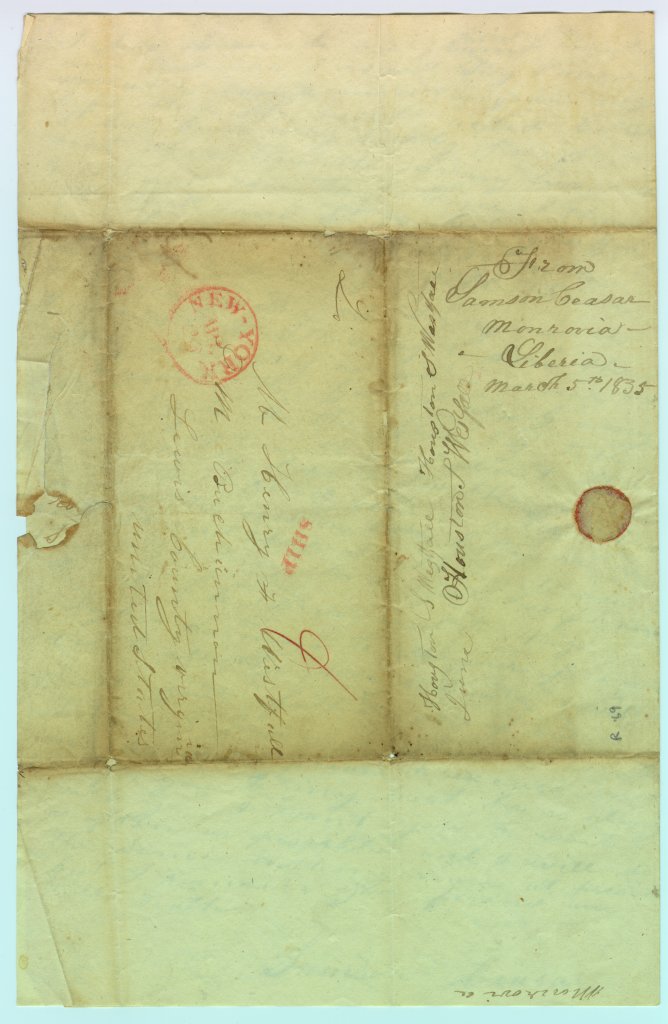 From
Samson Ceasar
Monrovia
Liberia
March 5th 1835
Houston S Westfall Houston S Westfall
Houston S Westfall
June
R-69
NEW-YORK
SHIP
Mr Henry F Westfall
Buckhannon
Lewis County virginia
united States
Monrovia